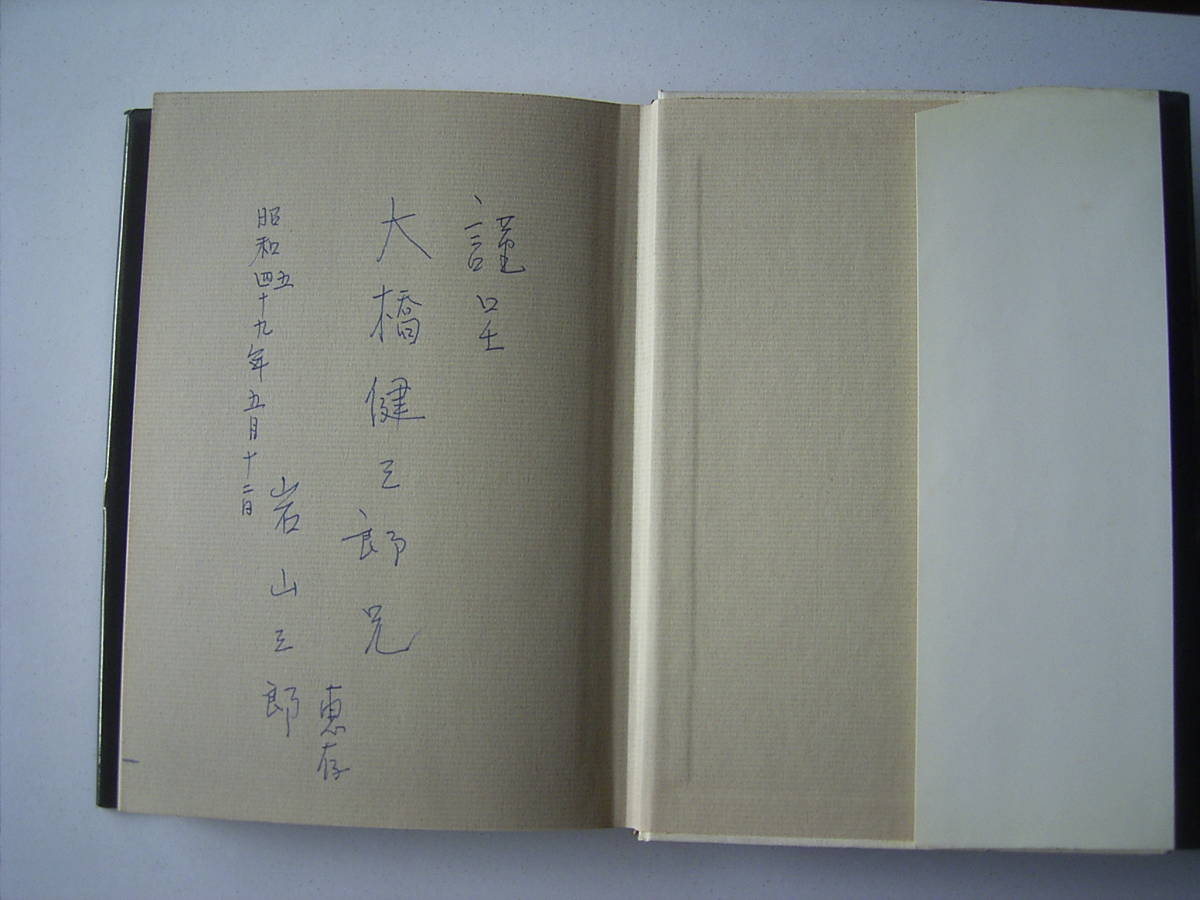 謹呈
大橋健三郎兄
恵存
岩山三郎
昭和四五十九年五月十二日